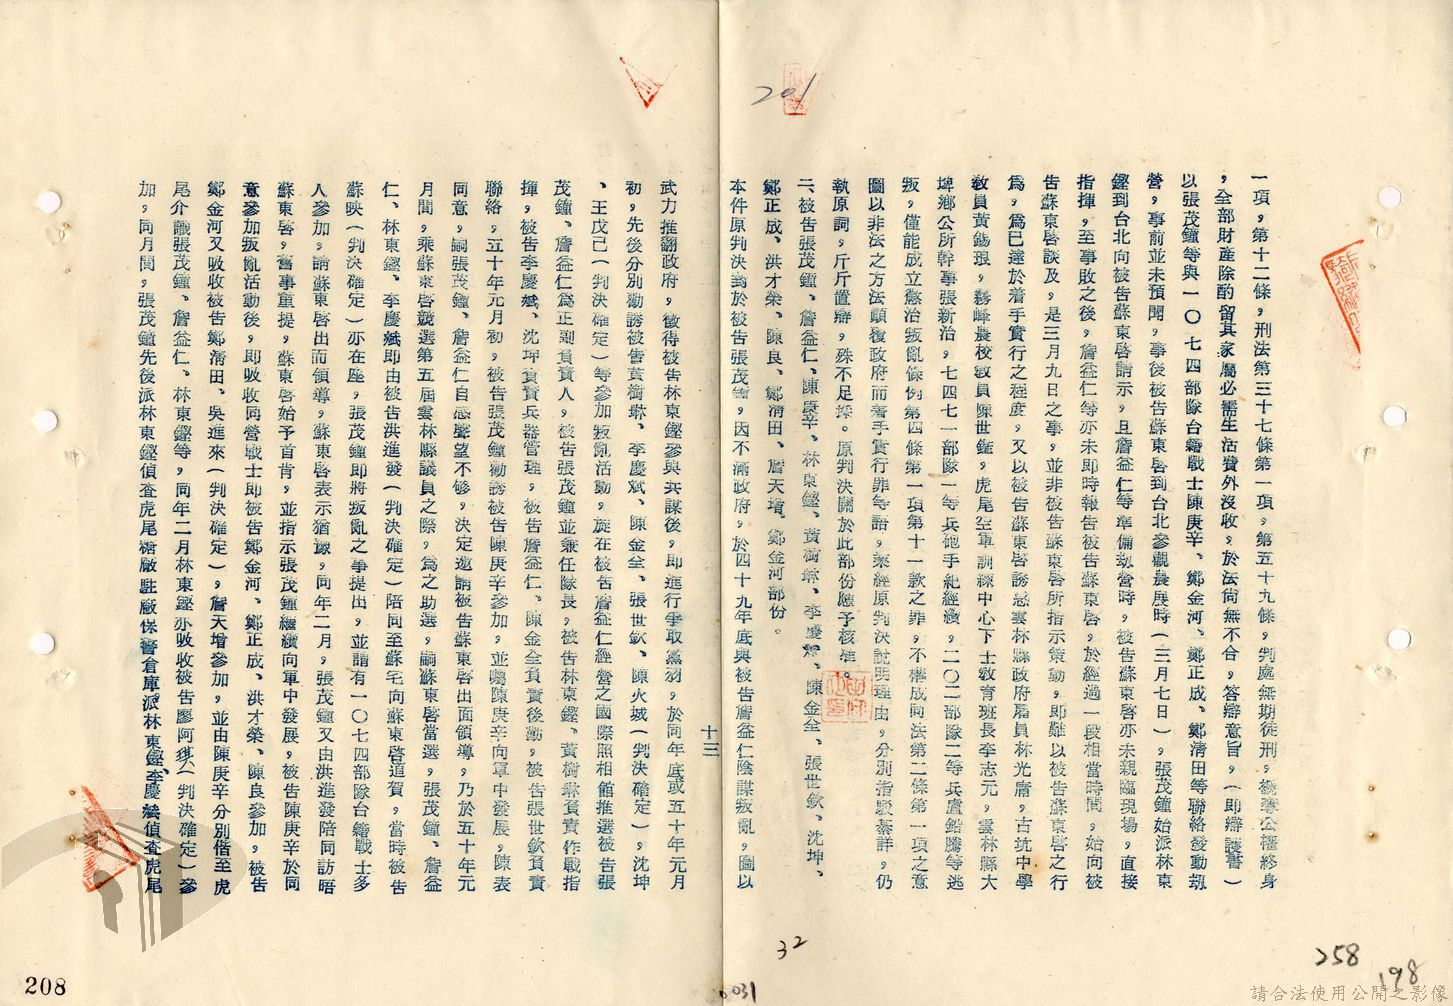 201
一項，第十二條，刑法第三十七條第一項，第五十九條，判處無期徒刑，褫奪公權終身
，全部財產除酌留其家屬必需生活費外沒收，於法尚無不合，答辯意旨，（即辯護書）
以張茂鐘等與一〇七四部隊台籍戰士陳庚辛、鄭金河、鄭正成、鄭清田等聯絡發動劫
營，事前並未預聞，事後被告蘇東啓到台北參觀農展時（三月七日），張茂鐘始派林東
鏗到台北向被告蘇東啓請示，且詹益仁等準備劫營時，被告蘇東啓亦未親臨現場，直接
指揮，至事敗之後，詹益仁等亦未即時報告被告蘇東啓，於經過一段相當時間，始向被
告蘇東啓談及，是三月九日之事，並非被告蘇東啓所指示策動，即難以被告蘇東啓之行
為，為已達於着手實行之程度，又以被告蘇東啓誘惑雲林縣政府雇員林光庸，古坑中學
教員黃錫琅，霧峰農校教員陳世鑑，虎尾空軍訓練中心下士教育班長李志元，雲林縣大
埤鄉公所幹事張新治，七四七一部隊一等兵砲手紀經濱，二〇二部隊二等兵盧鉛騰等逃
叛，僅能成立懲治叛亂條例第四條第一項第十一款之罪，不構成同法第二條第一項之意
圖以非法之方法顛覆政府而着手實行罪等語，業經原判決說明理由，分別指駁綦詳，仍
執原詞，斤斤置辯，殊不足採。原判決關於此部份應予核准。
二、被告張茂鐘、詹益仁、陳庚辛、林東鏗、黃樹琳、李慶斌、陳金全、張世欽、沈坤、
鄭正成、洪才榮、陳良、鄭清田、詹天增、鄭金河部份。
本件原判決對於被告張茂鐘，因不滿政府，於四十九年底與被告詹益仁陰謀叛亂，圖以
十三
武力推翻政府，徵得被告林東鏗參與共謀後，即進行爭取黨羽，於同年底或五十年元月
初，先後分別勸誘被告黃樹琳、李慶斌、陳金全、張世欽、陳火城（判決確定），沈坤
、王戊己（判決確定）等參加叛亂活動，旋在被告詹益仁經營之國際照相館推選被告張
茂鐘、詹益仁為正副負責人，被告張茂鐘並兼任隊長，被告林東鏗、黃樹琳負責作戰指
揮，被告李慶斌、沈坤負責兵器管理，被告詹益仁、陳金全負責後勤，被告張世欽負責
聯絡，五十年元月初，被告張茂鐘勸誘被告陳庚辛參加，並囑陳庚辛向軍中發展，陳表
同意，嗣張茂鐘、詹益仁自感聲望不够，決定邀請被告蘇東啓出面領導，乃於五十年元
月間，乘蘇東啓競選第五屆雲林縣議員之際，為之助選，嗣蘇東啓當選，張茂鐘、詹益
仁、林東鏗、李慶斌即由被告洪進發（判決確定）陪同至蘇宅向蘇東啓道賀，當時被告
蘇映（判決確定）亦在座，張茂鐘即將叛亂之事提出，並謂有一〇七四部隊台籍戰士多
人參加，請蘇東啓出而領導，蘇東啓表示猶豫，同年二月，張茂鐘又由洪進發陪同訪晤
蘇東啓，舊事重提，蘇東啓始予首肯，並指示張茂鐘繼續向軍中發展，被告陳庚辛於同
意參加叛亂活動後，即吸收同營戰士即被告鄭金河、鄭正成、洪才榮、陳良參加，被告
鄭金河又吸收被告鄭清田、吳進來（判決確定），詹天增參加，並由陳庚辛分別偕至虎
尾介識張茂鐘、詹益仁、林東鏗等，同年二月林東鏗亦吸收被告廖阿琪（判決確定）參
加，同月間，張茂鐘先後派林東鏗偵查虎尾糖廠駐廠保警倉庫，派林東鏗、李慶斌偵查虎尾
32
258
198
031
208
請合法使用公開之影像